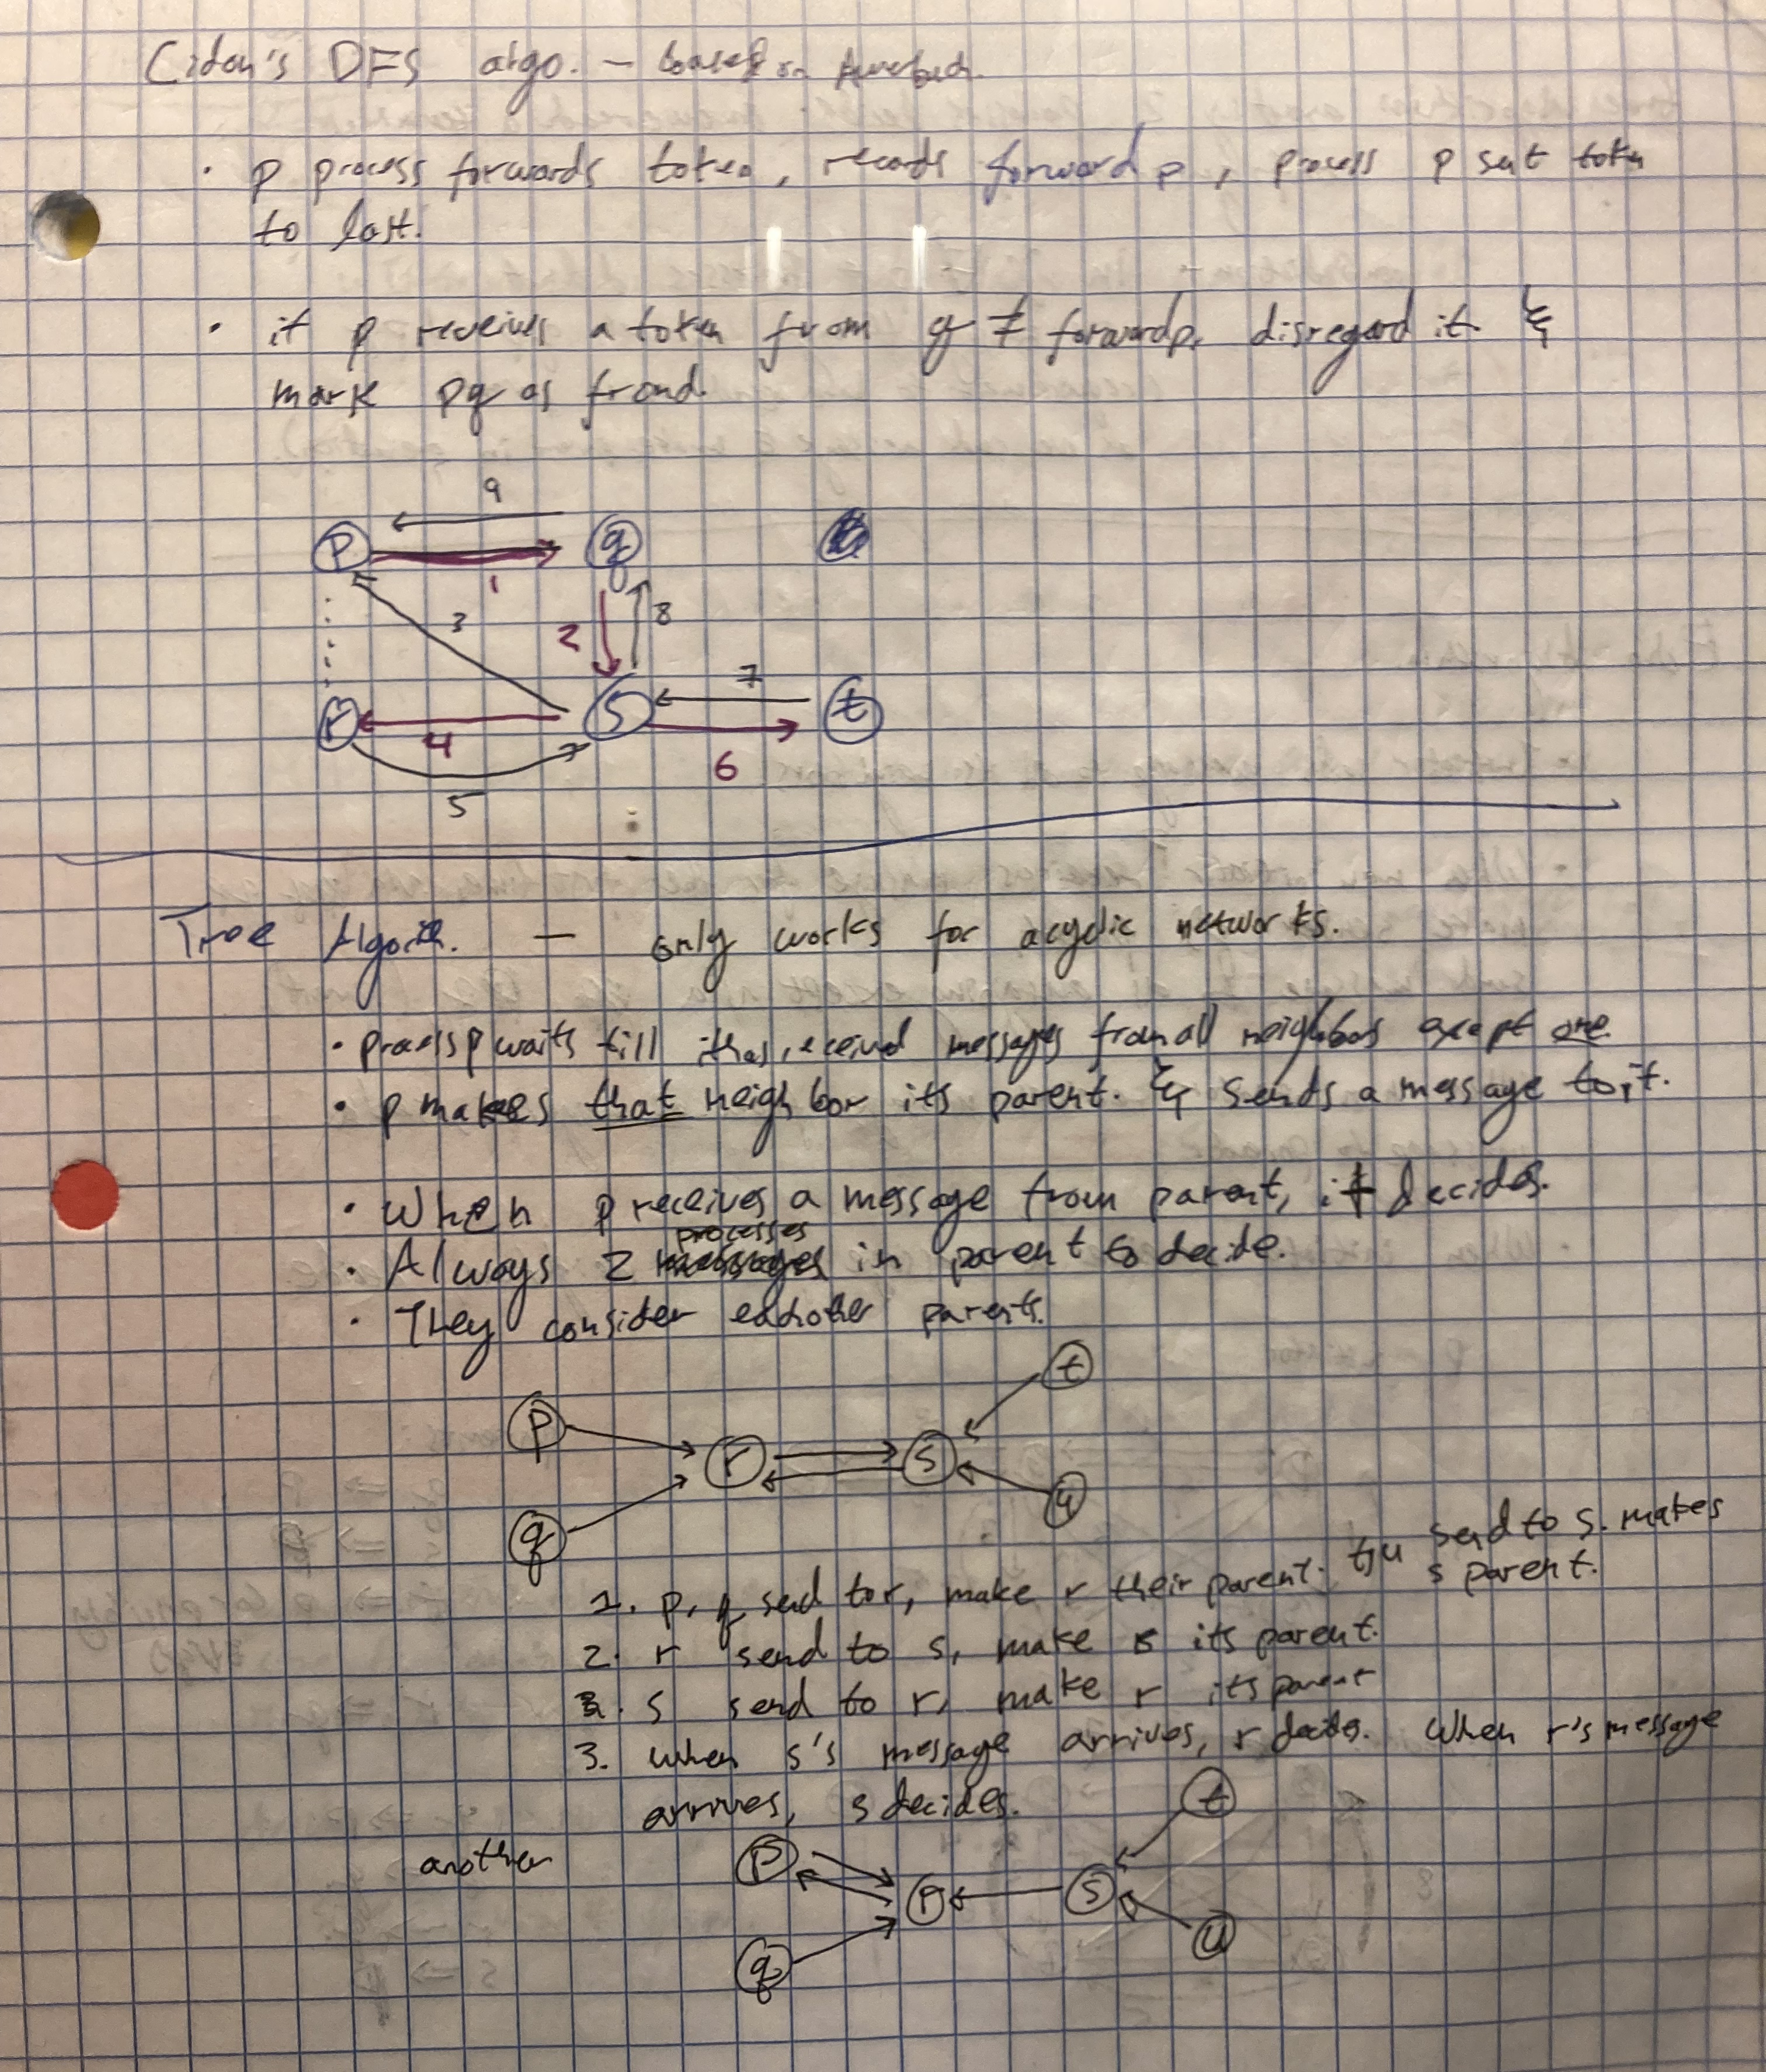 Cidon's DFS algo. – based on Awerbuch.
· p process forwards token, records forward p, process p sent token
to last.
· if p receives a token from q ≠ forwardp, disregard it &
mark pq as frond.
9
p q
1
3 2 8
7
r s t
4
6
5
Tree Algorith. — only works for acyclic networks.
· process p waits till it has received messages from all neighbors except one.
· p makes that neighbor its parent. & sends a message to it.
· When p receives a message from parent, it decides.
processes
· Always 2 in parent to decide.
· They consider eachother parents.
t
p
r s
q u
1. p, q send to r, make r their parent. t, u send to s. makes
s parent.
2. r send to s, make s its parent.
3. s send to r, make r its parent
3. when s's message arrives, r decides. When r's message
arrives, s decides.
t
another p
r s
q u